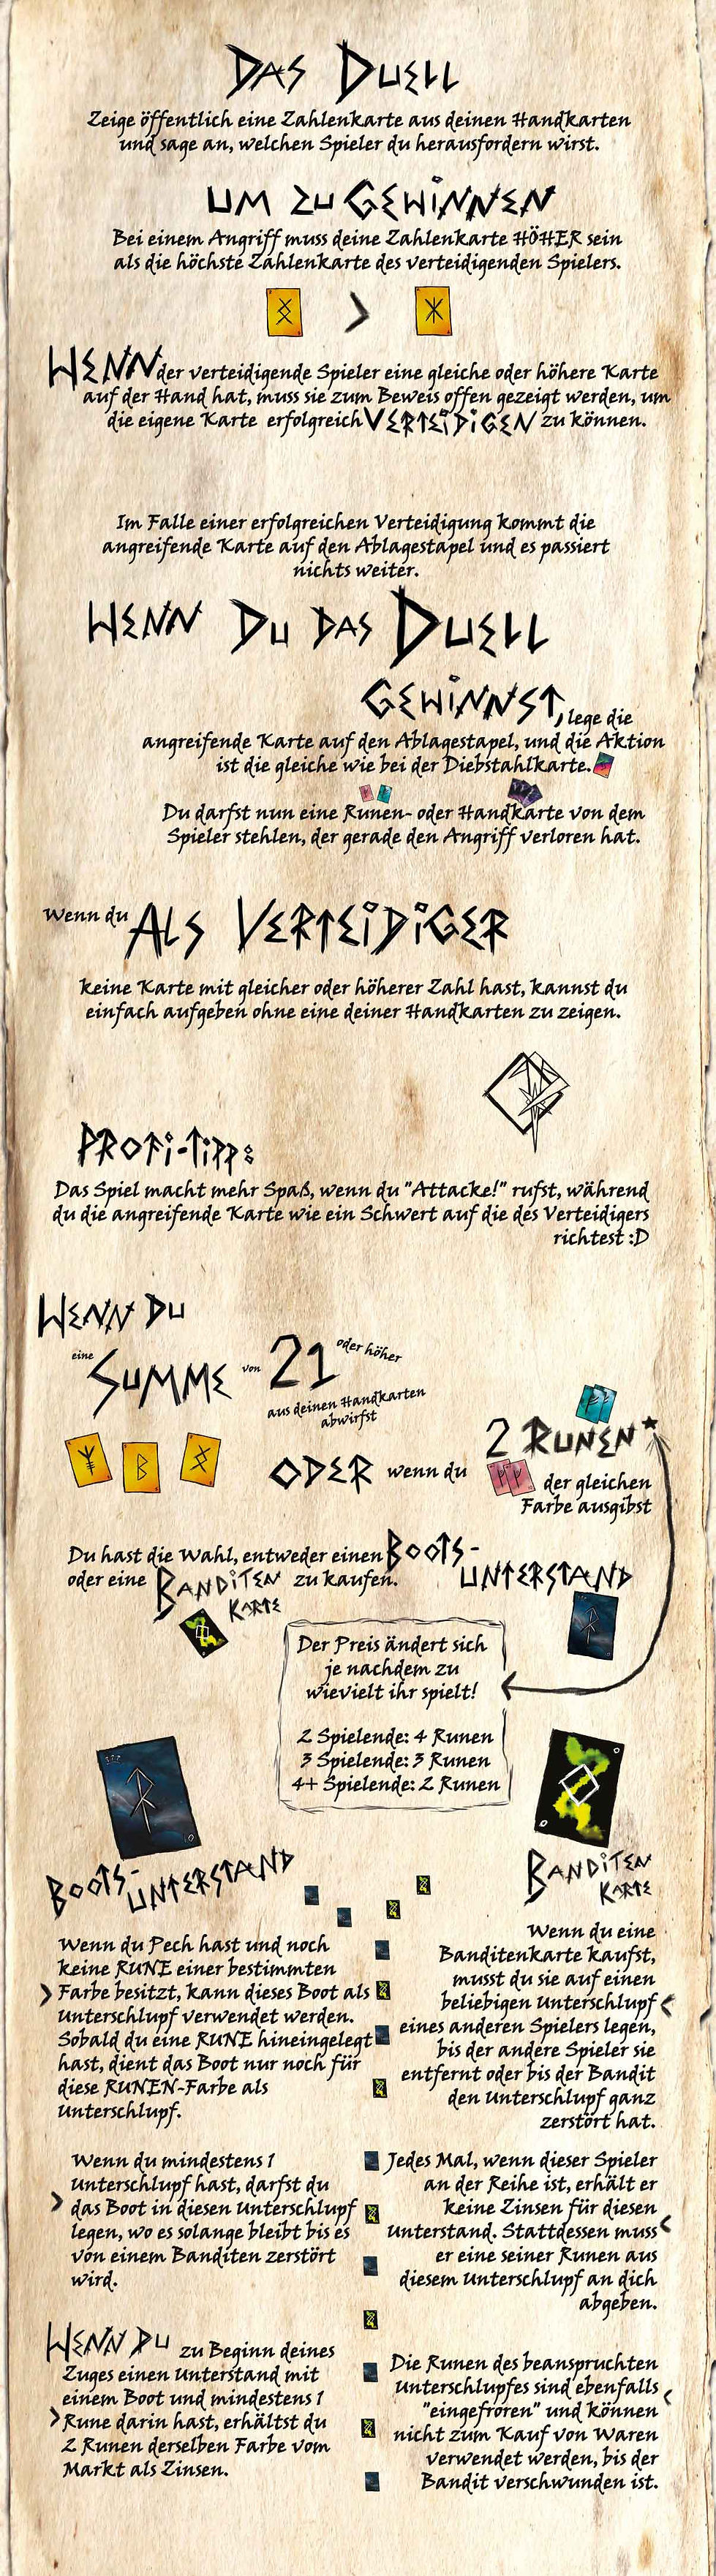 DAS DUELL
Zeige öffentlich eine Zahlenkarte aus deinen Handkarten
und sage an, welchen Spieler du herausfordern wirst.
UM ZU GEWINNEN
Bei einem Angriff muss deine Zahlenkarte HÖHER sein
als die höchste Zahlenkarte des verteidigenden Spielers.
>
WENN der verteidigende Spieler eine gleiche oder höhere Karte
auf der Hand hat, muss sie zum Beweis offen gezeigt werden, um
die eigene Karte erfolgreich VERTEIDIGEN zu können.
Im Falle einer erfolgreichen Verteidigung kommt die
angreifende Karte auf den Ablagestapel und es passiert
nichts weiter.
WENN DU DAS DUELL
GEWINNST, lege die
angreifende Karte auf den Ablagestapel, und die Aktion
ist die gleiche wie bei der Diebstahlkarte.
Du darfst nun eine Runen- oder Handkarte von dem
Spieler stehlen, der gerade den Angriff verloren hat.
Wenn du ALS VERTEIDIGER
keine Karte mit gleicher oder höherer Zahl hast, kannst du
einfach aufgeben ohne eine deiner Handkarten zu zeigen.
PROFI-TIPP:
Das Spiel macht mehr Spaß, wenn du "Attacke!" rufst, während
du die angreifende Karte wie ein Schwert auf die des Verteidigers
richtest :D
WENN DU
eine SUMME von 21 oder höher
aus deinen Handkarten
abwirfst
ODER wenn du
2 RUNEN*
der gleichen
Farbe ausgibst
Du hast die Wahl, entweder einen BOOTS-
UNTERSTAND
oder eine BANDITEN KARTE zu kaufen.
Der Preis ändert sich
je nachdem zu
wievielt ihr spielt!
2 Spielende: 4 Runen
3 Spielende: 3 Runen
4+ Spielende: 2 Runen
BOOTS-UNTERSTAND
Wenn du Pech hast und noch
keine RUNE einer bestimmten
Farbe besitzt, kann dieses Boot als
Unterschlupf verwendet werden.
Sobald du eine RUNE hineingelegt
hast, dient das Boot nur noch für
diese RUNEN-Farbe als
Unterschlupf.
Wenn du mindestens 1
Unterschlupf hast, darfst du
das Boot in diesen Unterschlupf
legen, wo es solange bleibt bis es
von einem Banditen zerstört
wird.
WENN DU zu Beginn deines
Zuges einen Unterstand mit
einem Boot und mindestens 1
Rune darin hast, erhältst du
2 Runen derselben Farbe vom
Markt als Zinsen.
BANDITEN
KARTE
Wenn du eine
Banditenkarte kaufst,
musst du sie auf einen
beliebigen Unterschlupf
eines anderen Spielers legen,
bis der andere Spieler sie
entfernt oder bis der Bandit
den Unterschlupf ganz
zerstört hat.
Jedes Mal, wenn dieser Spieler
an der Reihe ist, erhält er
keine Zinsen für diesen
Unterstand. Stattdessen muss
er eine seiner Runen aus
diesem Unterschlupf an dich
abgeben.
Die Runen des beanspruchten
Unterschlupfes sind ebenfalls
"eingefroren" und können
nicht zum Kauf von Waren
verwendet werden, bis der
Bandit verschwunden ist.